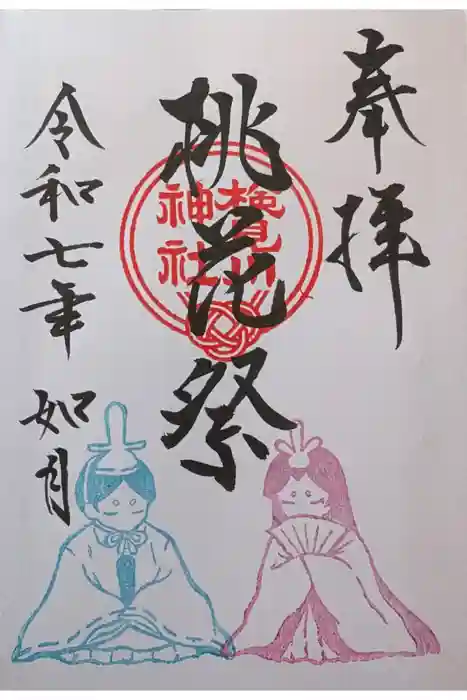 奉拝
桃花祭
令和七年 如月
神社